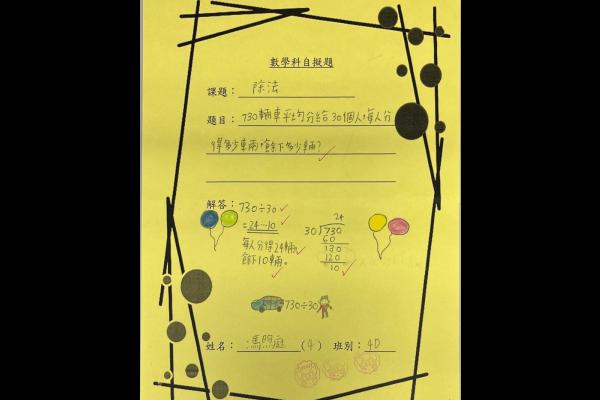 數學科自擬題
課題：除法
題目：730輛車平均分給30個人，每人分
得多少車兩，餘下多少輛？
解答：730÷30
=24…10
每人分得24輛，
餘下10輛。
24
30 730
60
130
120
10
730÷30
姓名：馮煦庭（4） 班別：4D